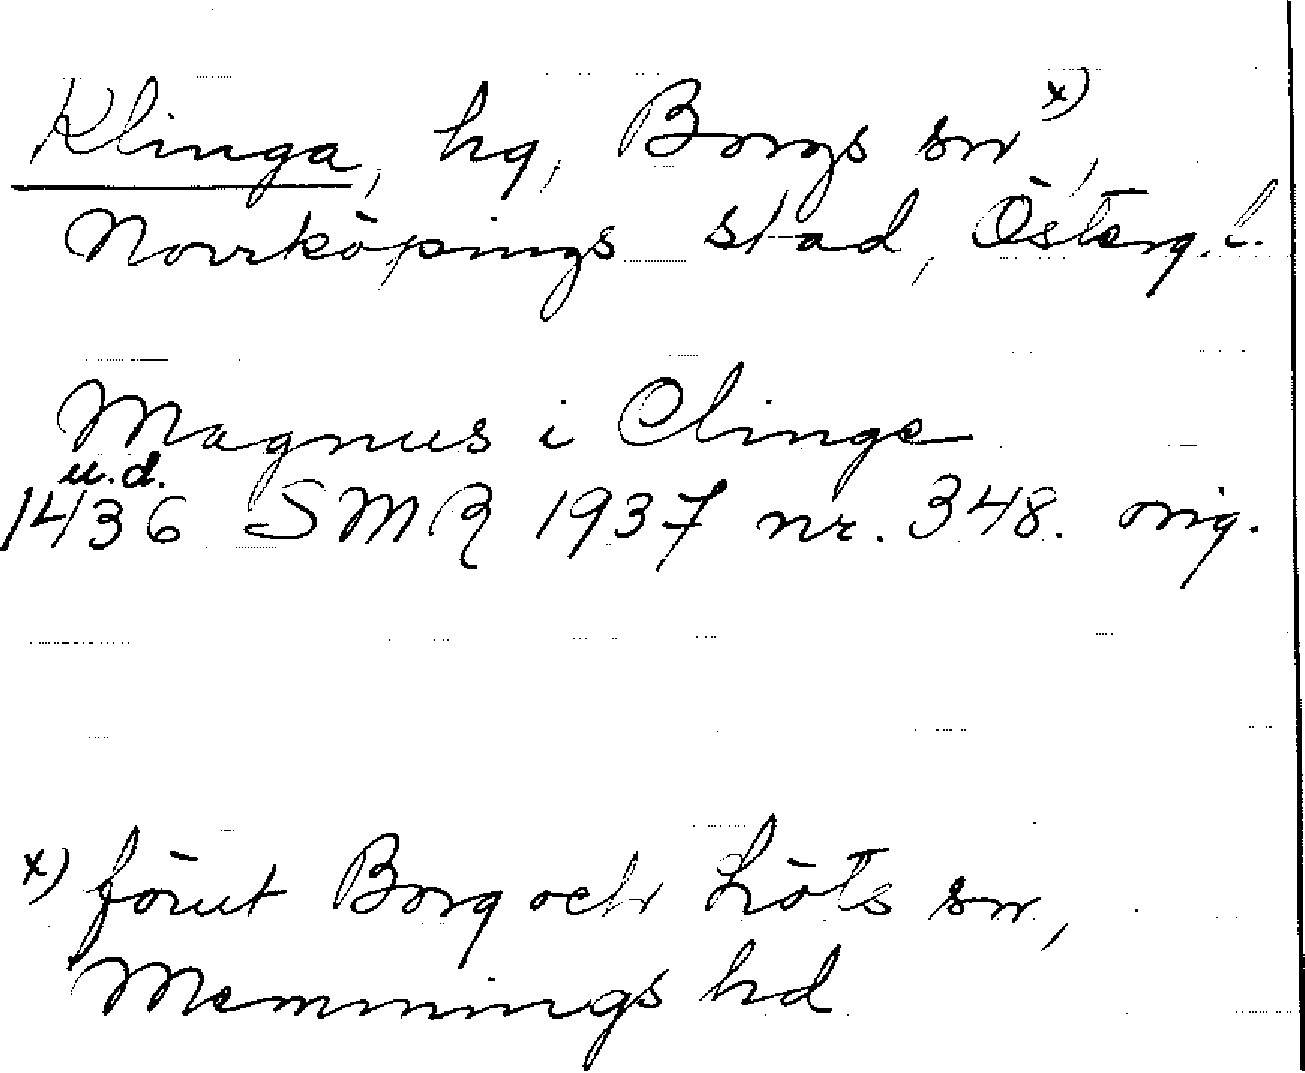 Klinga, hg, Borgs sn x),
Norrköpings stad, Österg.l.
Magnus i Clinge
u.d.
1436 SMR 1937 nr. 348. orig.
x) förut Borg och Löts sn,
Memmings hd